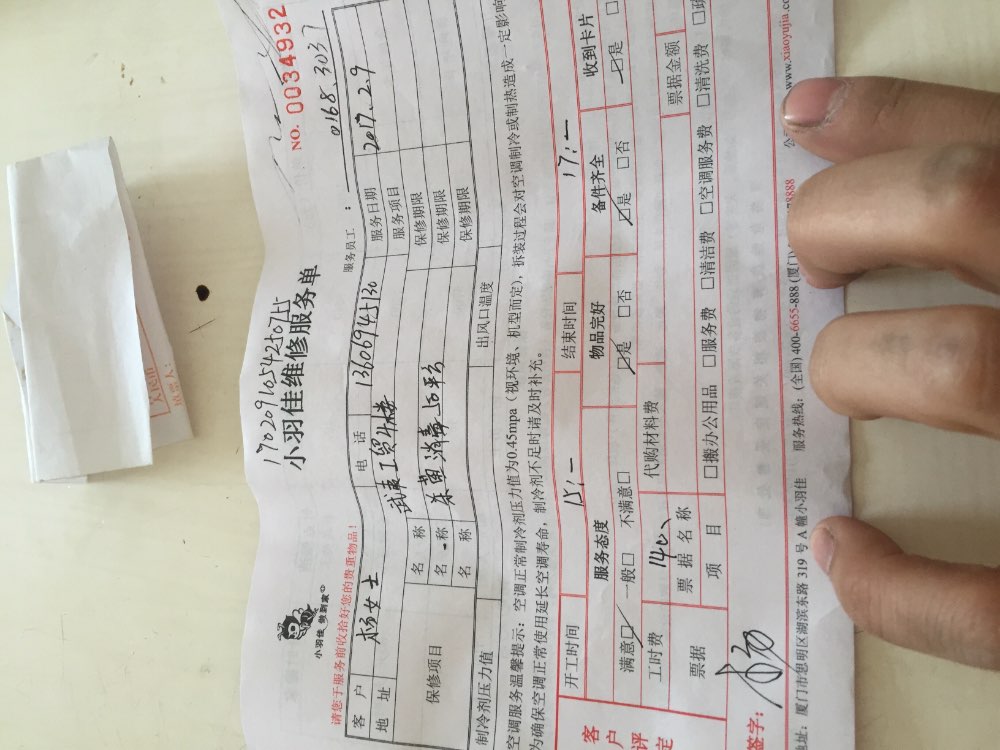 17020910542507占
NO. 0034932
小羽佳 做到家
小羽佳维修服务单
请您于服务前收拾好您的贵重物品！
服务员工： 0168.3037
客户 杨女士 电话 13606945130 服务日期 2017.2.9
地址 服务项目
保修项目 名称 保修期限
名称 保修期限
名称 保修期限
制冷剂压力值 出风口温度
空调服务温馨提示：空调正常制冷剂压力值为0.45mpa（视环境、机型而定），拆装过程会对空调制冷或制热造成一定影响
为确保空调正常使用延长空调寿命，制冷剂不足时请及时补充。
开工时间 15:— 结束时间 17:—
客户评定 服务态度 物品完好 备件齐全 收到卡片
满意☑ 一般□ 不满意□ ☑是 □否 ☑是 □否 ☑是 □
工时费 140、 代购材料费
票据 票据名称 票据金额
项目 □搬办公用品 □服务费 □清洁费 □空调服务费 □清洗费 □疏
签字： 杨
地址：厦门市思明区湖滨东路319号A幢小羽佳 服务热线：(全国) 400-6655-888 (厦门) 8888 www.xiaoyujia.co